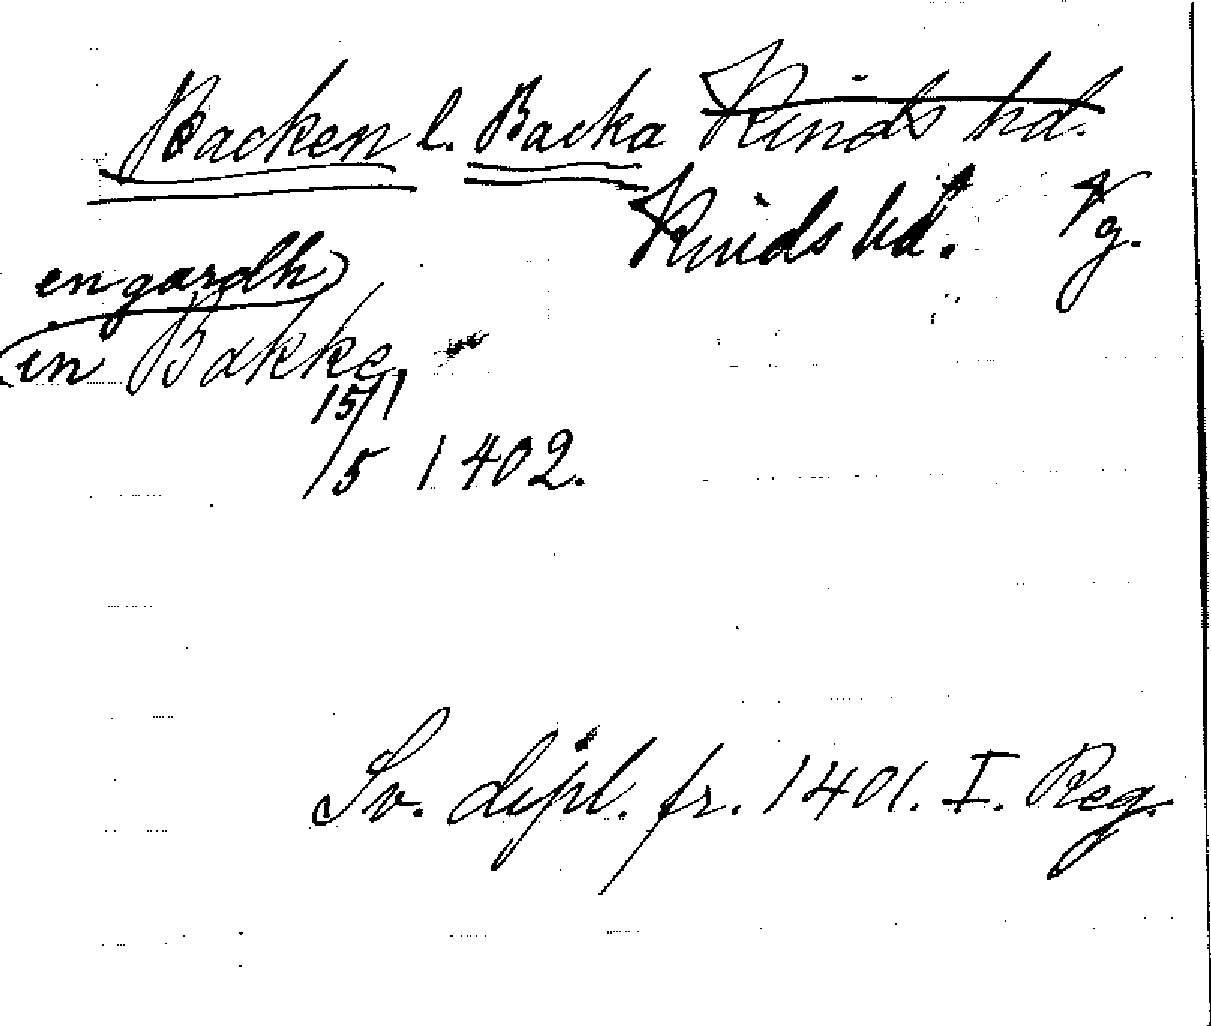 Backen l. Backa Kinds hd.
Kinds hd. Vg.
en gardh
in Bakke
15/5 1402.
Sv. dipl. fr. 1401. I. Reg.